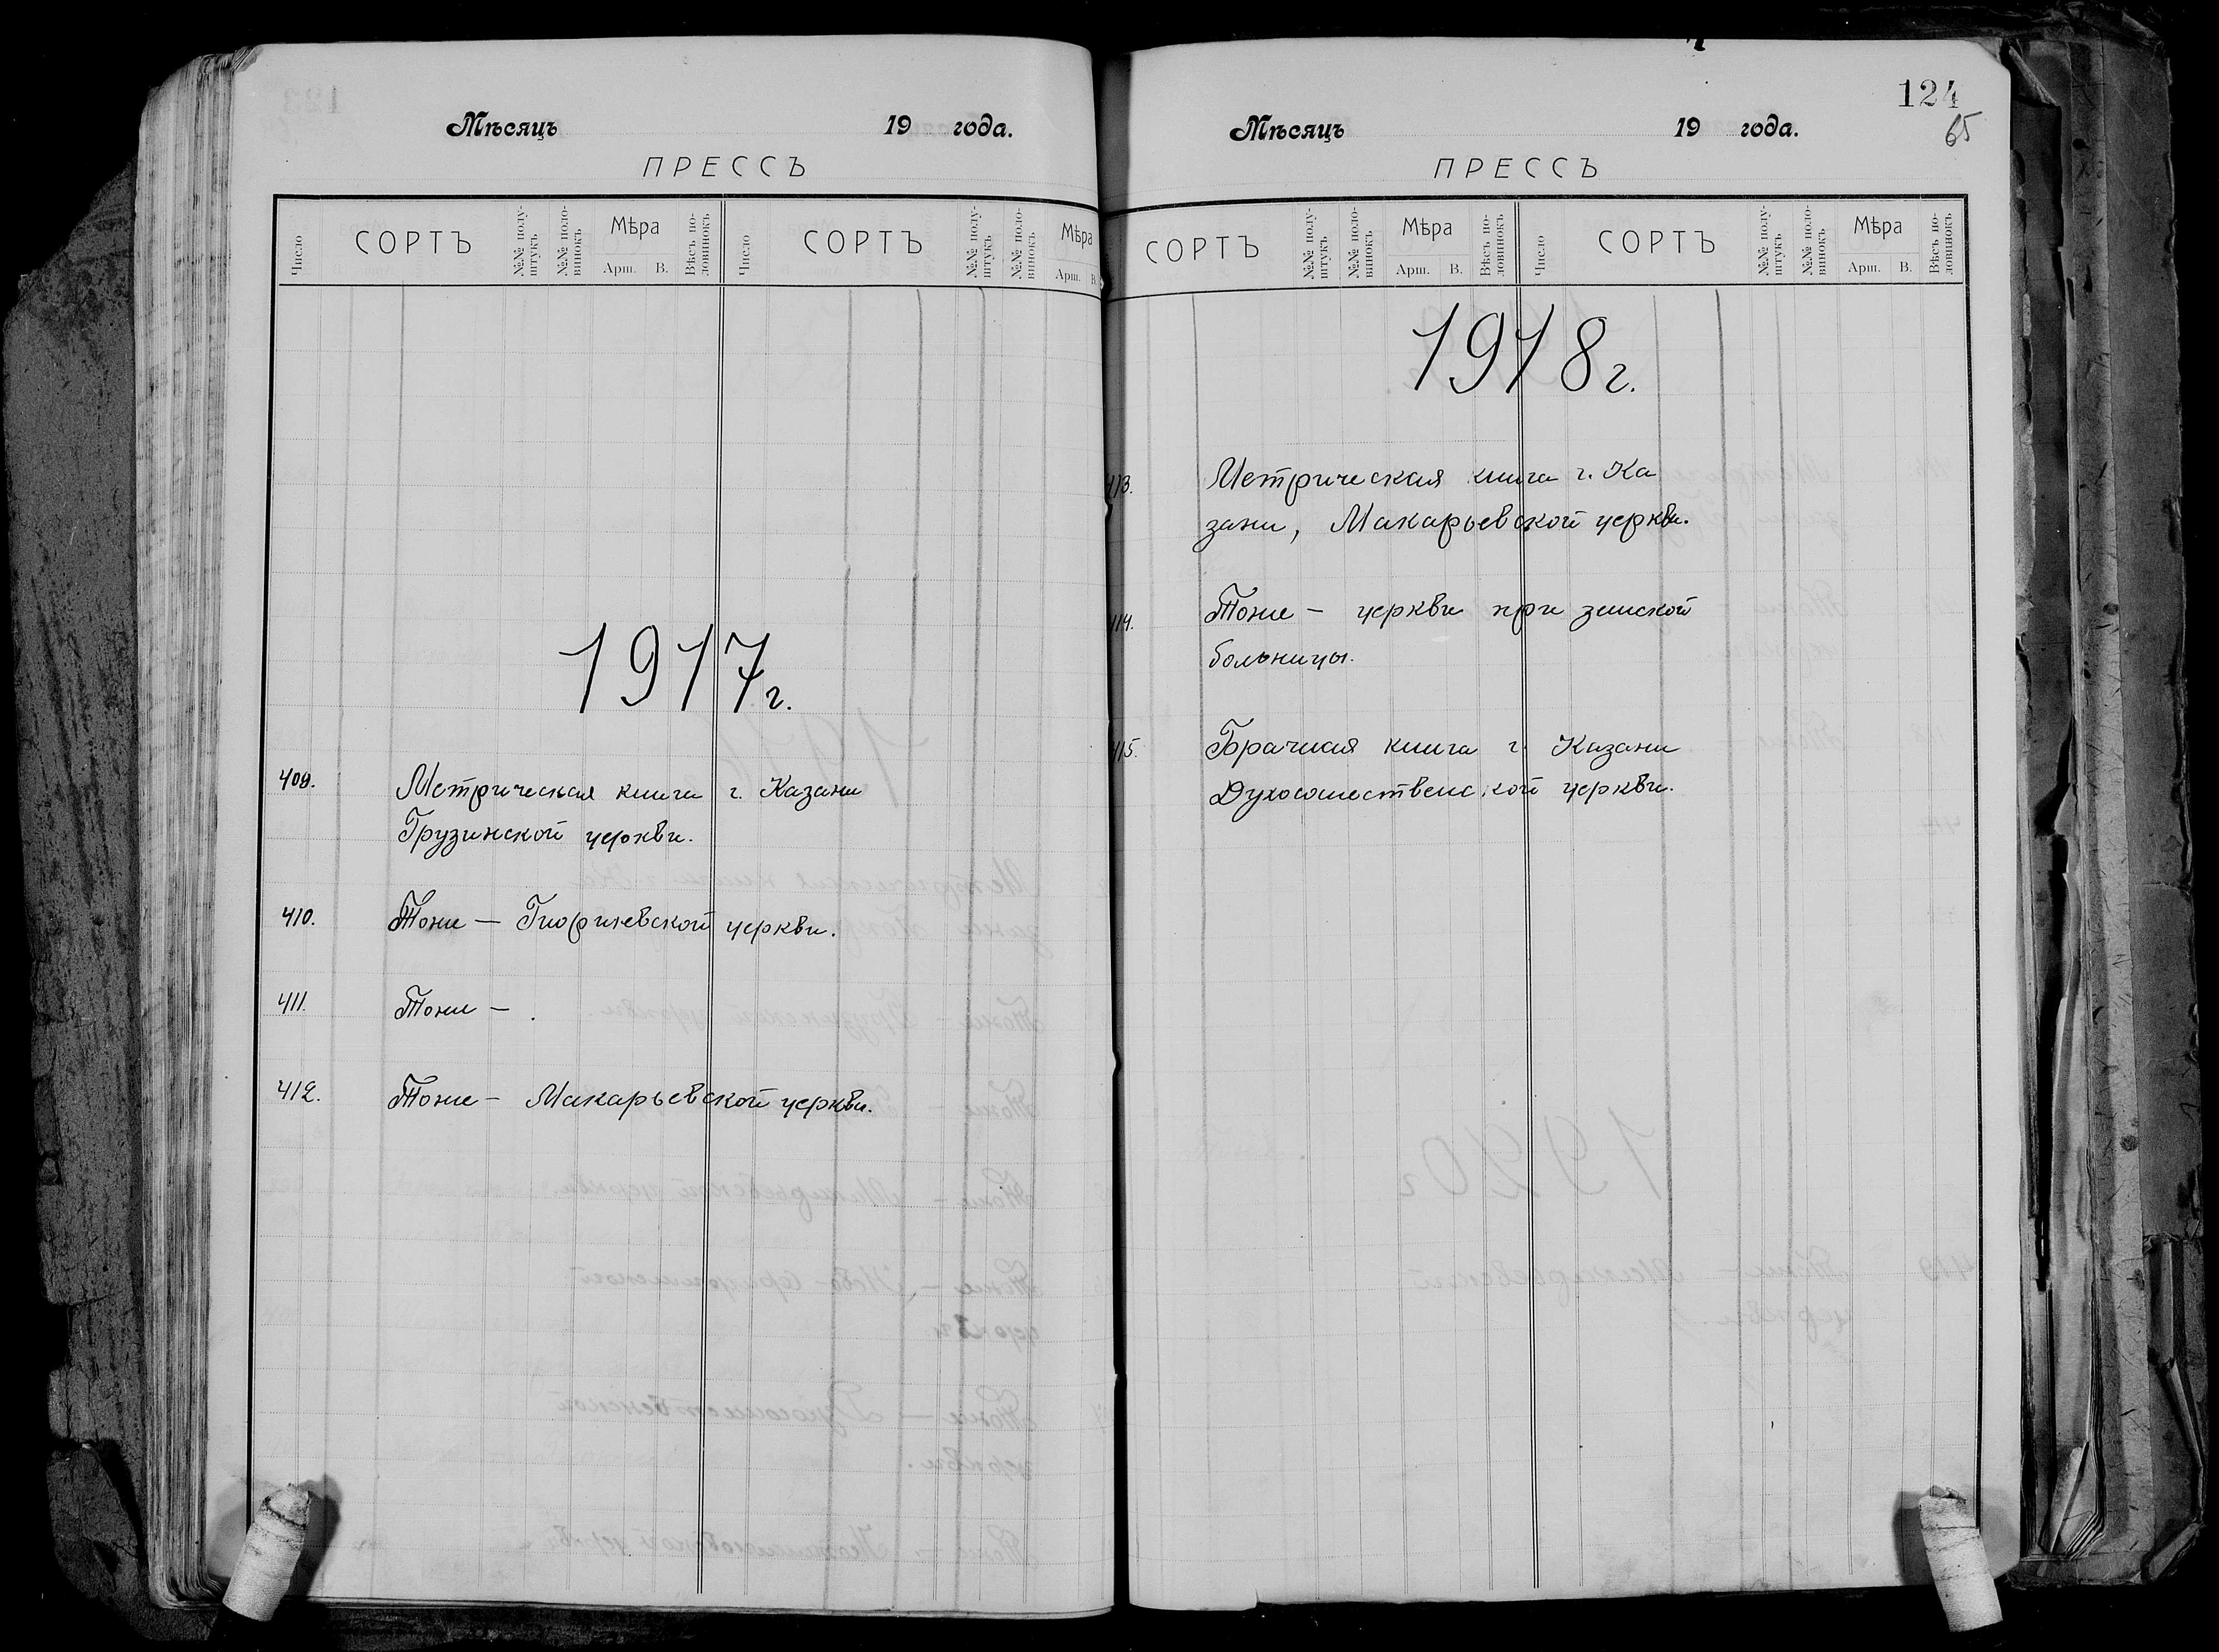 Мѣсяцъ 19 года.
ПРЕССЪ
Число СОРТЪ №№ полу-штукъ №№ поло-винокъ Мѣра Арш. В. Вѣсъ по-ловинокъ Число СОРТЪ №№ полу-штукъ №№ поло-винокъ Мѣра Арш. В.
1917 г.
409. Метрическая книга г. Казани
Грузинской церкви.
410. Тоже — церкви.
411. Тоже — .
412. Тоже — Макарьевской церкви.
124
65
Мѣсяцъ 19 года.
ПРЕССЪ
СОРТЪ №№ полу-штукъ №№ поло-винокъ Мѣра Арш. В. Вѣсъ по-ловинокъ Число СОРТЪ №№ полу-штукъ №№ поло-винокъ Мѣра Арш. В. Вѣсъ по-ловинокъ
1918 г.
413. Метрическая книга г. Ка
зани, Макарьевской церкви.
414. Тоже — церкви при земской
больницы.
415. Брачная книга г. Казани
Духосошественской церкви.